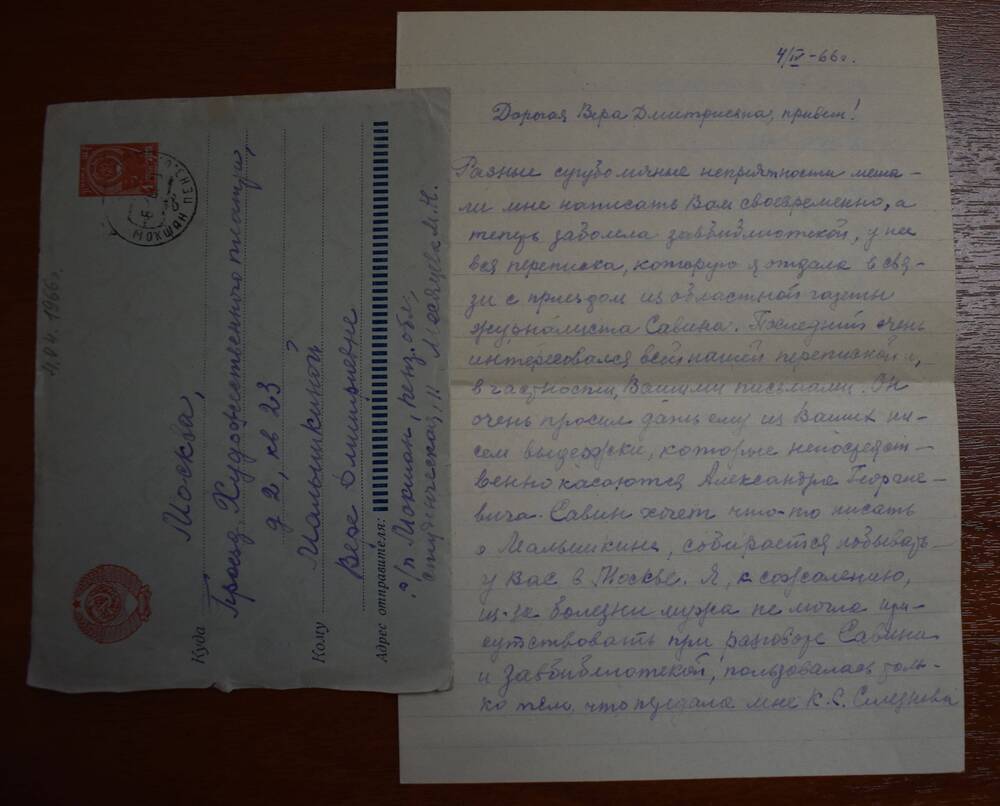 4/IV-66г.
Дорогая Вера Дмитриевна, привет!
Разные сугубо личные неприятности меша-
ли мне написать Вам своевременно, а
теперь заболела завбиблиотекой, у нее
вся переписка, которую я отдала в свя-
зи с приездом из областной газеты
журналиста Савина. Последний очень
интересовался всей нашей перепиской и,
в частности, Вашими письмами. Он
очень просил дать ему из Ваших пи-
сем выдержки, которые непосредст-
венно касаются Александра Георгие-
вича. Савин хочет что-то писать
о Малышкине, собирается побывать
у Вас в Москве. Я, к сожалению,
из-за болезни мужа не могла при-
сутствовать при разговоре Савина
и завбиблиотекой, пользовалась толь-
ко тем, что передала мне К. С. Селезнева
4.04.1966г.
Куда Москва,
Проезд Художественного театра,
д 2, кв 23
Кому Малышкиной
Вере Дмитриевне
Адрес отправителя:
р/п Мокшан, пенз. обл.,
студенческая, 11
МОКШАН ПЕНЗ